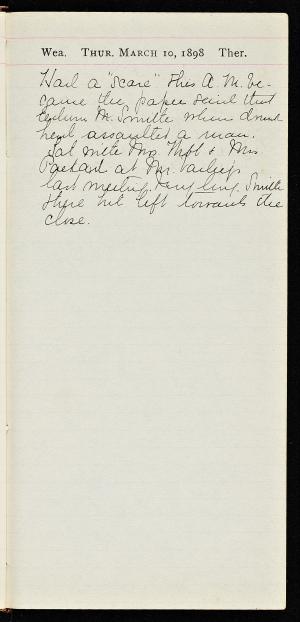 Wea. THUR. MARCH 10, 1898 Ther.
Had a "scare" this A.M. be-
cause the paper said that
M. Smith when drunk
had assaulted a man.
Sat with Mrs. & Mrs.
Packard at Mr.
last meeting. Smith
there but left towards the
close.